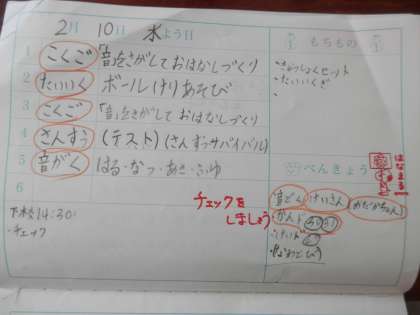 2月 10日 水よう日
1 こくご 「音」をさがしておはなしづくり
2 たいいく ボールけりあそび
3 こくご 「音」をさがしておはなしづくり
4 さんすう (テスト)(さんすうサバイバル)
5 音がく はる・なつ・あき・ふゆ
6
下校14:30
・チェック
チェックを
しましょう
もちもの
・きゅうしょくセット
・たいいくぎ
・
べんきょう
はなまる
音どく けいさん
かんド